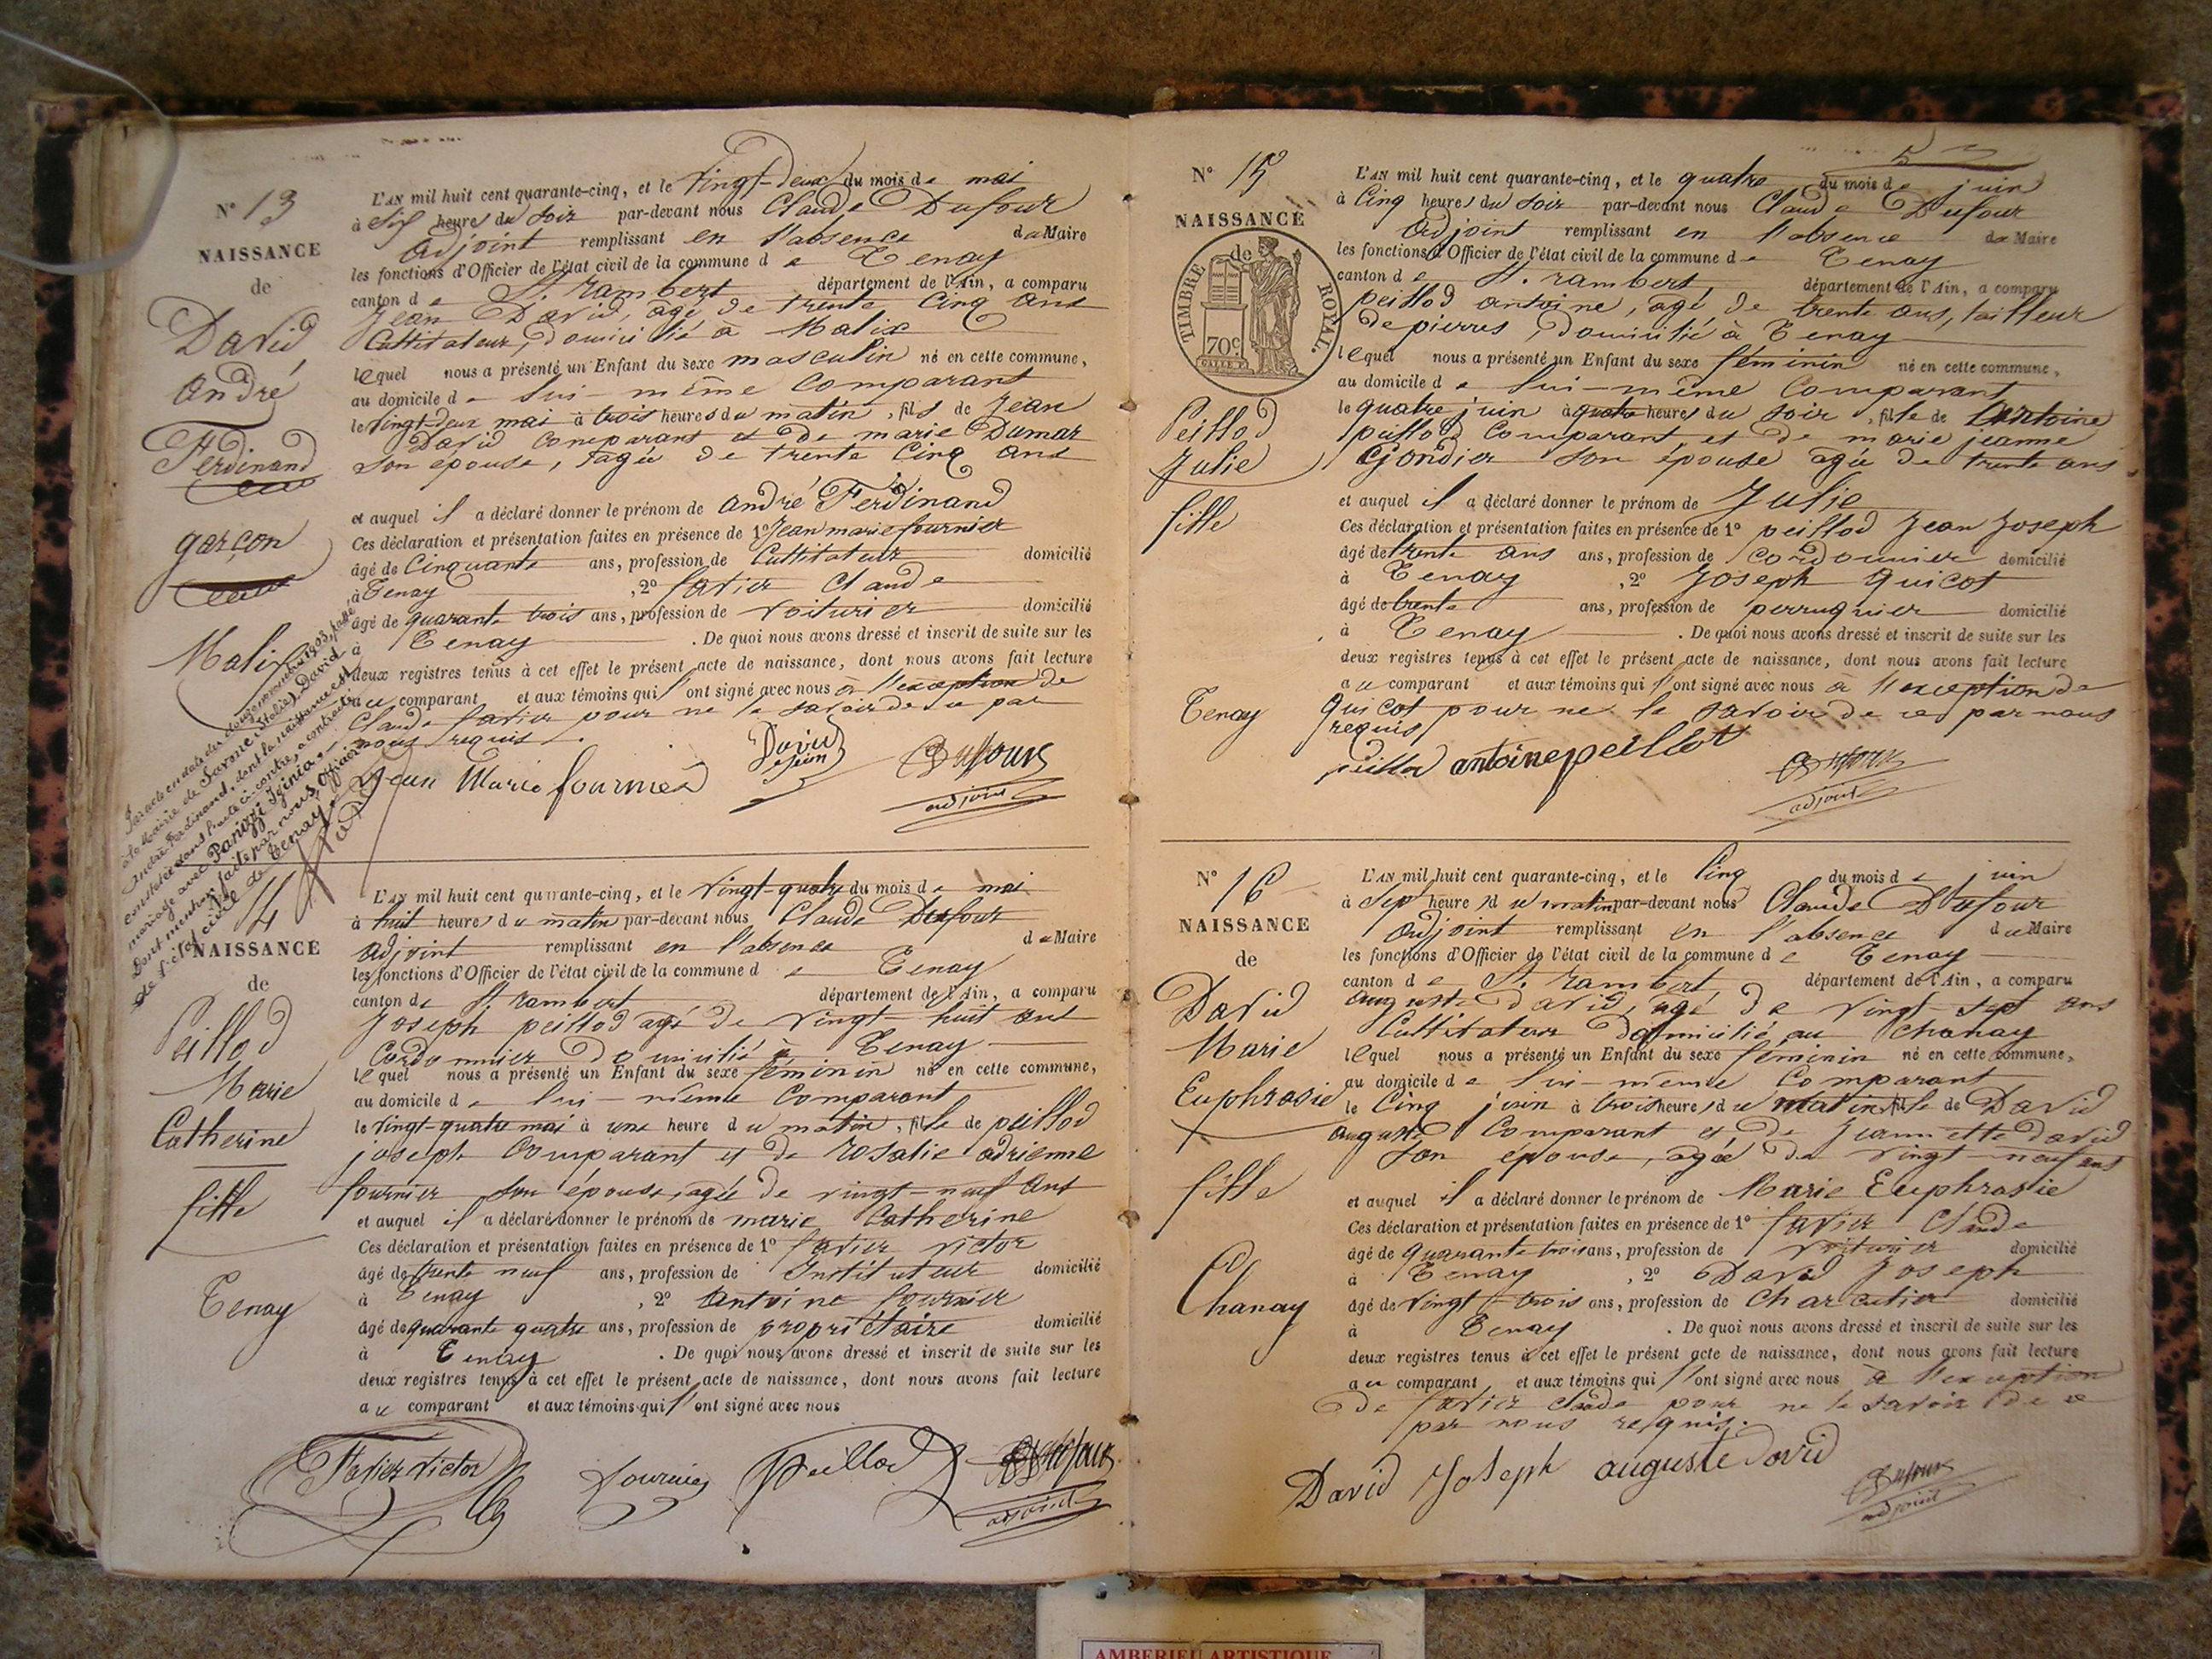 N° 13
NAISSANCE
de
David
André
Ferdinand
garçon
Malix
L'AN mil huit cent quarante-cinq, et le vingt-deux du mois de mai
à six heures du soir par-devant nous Claude Dufour
adjoint remplissant en l'absence du Maire
les fonctions d'Officier de l'état civil de la commune de Tenay
canton de St. rambert département de l'Ain, a comparu
Jean David, agé de trente cinq ans
Cultivateur, domicilié à Malix
lequel nous a présenté un Enfant du sexe masculin né en cette commune,
au domicile de lui-même comparant
le vingt-deux mai à trois heures du matin, fils de Jean
David comparant et de marie Dumar
son épouse, agée de trente cinq ans
et auquel il a déclaré donner le prénom de andré Ferdinand
Ces déclaration et présentation faites en présence de 1° Jean marie fournier
âgé de Cinquante ans, profession de Cultivateur domicilié
à Tenay, 2° favier Claude
âgé de quarante trois ans, profession de voiturier domicilié
à Tenay. De quoi nous avons dressé et inscrit de suite sur les
deux registres tenus à cet effet le présent acte de naissance, dont nous avons fait lecture
au comparant et aux témoins qui l'ont signé avec nous à l'exception de
Claude favier pour ne le savoir de ce par
nous requis.
Jean Marie fournier David Jean Dufour
adjoint
Par acte en date du douze novembre 1903, passé
à la Mairie de Savone (Italie), David
André Ferdinand, dont la naissance est
constatée dans l'acte ci-contre, a contracté
mariage avec Parizzi Iginia.
Dont mention faite par nous, Officier
de l'état civil de Tenay
N° 14
NAISSANCE
de
Peillod
Marie
Catherine
fille
Tenay
L'AN mil huit cent quarante-cinq, et le vingt-quatre du mois de mai
à huit heures du matin par-devant nous Claude Dufour
adjoint remplissant en l'absence du Maire
les fonctions d'Officier de l'état civil de la commune de Tenay
canton de St. rambert département de l'Ain, a comparu
Joseph peillod agé de vingt huit ans
Cordonnier domicilié à Tenay
lequel nous a présenté un Enfant du sexe féminin né en cette commune,
au domicile de lui-même Comparant
le vingt-quatre mai à une heure du matin, fille de peillod
joseph Comparant et de rosalie adrienne
fournier son épouse, agée de vingt-neuf ans
et auquel il a déclaré donner le prénom de marie Catherine
Ces déclaration et présentation faites en présence de 1° favier victor
âgé de trente neuf ans, profession de Instituteur domicilié
à Tenay, 2° Antoine fournier
âgé de quarante quatre ans, profession de propriétaire domicilié
à Tenay. De quoi nous avons dressé et inscrit de suite sur les
deux registres tenus à cet effet le présent acte de naissance, dont nous avons fait lecture
au comparant et aux témoins qui l'ont signé avec nous
Favier Victor fournier Peillod Dufour
adjoint
N° 15
NAISSANCE
de
TIMBRE ROYAL.
70c
Peillod
Julie
fille
Tenay
L'AN mil huit cent quarante-cinq, et le quatre du mois de juin
à Cinq heures du soir par-devant nous Claude Dufour
adjoint remplissant en l'absence du Maire
les fonctions d'Officier de l'état civil de la commune de Tenay
canton de St. rambert, département de l'Ain, a comparu
peillod antoine, agé de trente ans, tailleur
de pierres, domicilié à Tenay
lequel nous a présenté un Enfant du sexe féminin né en cette commune,
au domicile de lui-même comparant
le quatre juin à quatre heures du soir, fille de Antoine
peillod Comparant et de marie jeanne
Gondier son épouse agée de trente ans
et auquel il a déclaré donner le prénom de Julie
Ces déclaration et présentation faites en présence de 1° peillod Jean Joseph
âgé de trente ans ans, profession de Cordonnier domicilié
à Tenay, 2° Joseph quicot
âgé de trente ans, profession de perruquier domicilié
à Tenay. De quoi nous avons dressé et inscrit de suite sur les
deux registres tenus à cet effet le présent acte de naissance, dont nous avons fait lecture
au comparant et aux témoins qui l'ont signé avec nous à l'exception de
quicot pour ne le savoir de ce par nous
requis
peillod antoine peillot Dufour
adjoint
N° 16
NAISSANCE
de
David
Marie
Euphrasie
fille
Chanay
L'AN mil huit cent quarante-cinq, et le Cinq du mois de juin
à sept heures du matin par-devant nous Claude Dufour
adjoint remplissant en l'absence du Maire
les fonctions d'Officier de l'état civil de la commune de Tenay
canton de St. rambert, département de l'Ain, a comparu
auguste david, agé de vingt-sept ans
Cultivateur domicilié au Chanay
lequel nous a présenté un Enfant du sexe féminin né en cette commune,
au domicile de lui-même Comparant
le Cinq juin à trois heures du matin fille de David
auguste Comparant et de Jeannette david
son épouse, agée de vingt-neuf ans
et auquel il a déclaré donner le prénom de Marie Euphrasie
Ces déclaration et présentation faites en présence de 1° favier Claude
âgé de quarante trois ans, profession de voiturier domicilié
à Tenay, 2° David Joseph
âgé de vingt-trois ans, profession de Charcutier domicilié
à Tenay. De quoi nous avons dressé et inscrit de suite sur les
deux registres tenus à cet effet le présent acte de naissance, dont nous avons fait lecture
au comparant et aux témoins qui l'ont signé avec nous à l'exception
de favier Claude pour ne le savoir de ce
par nous requis.
David Joseph auguste david Dufour
adjoint
AMBERIEU ARTISTIQUE